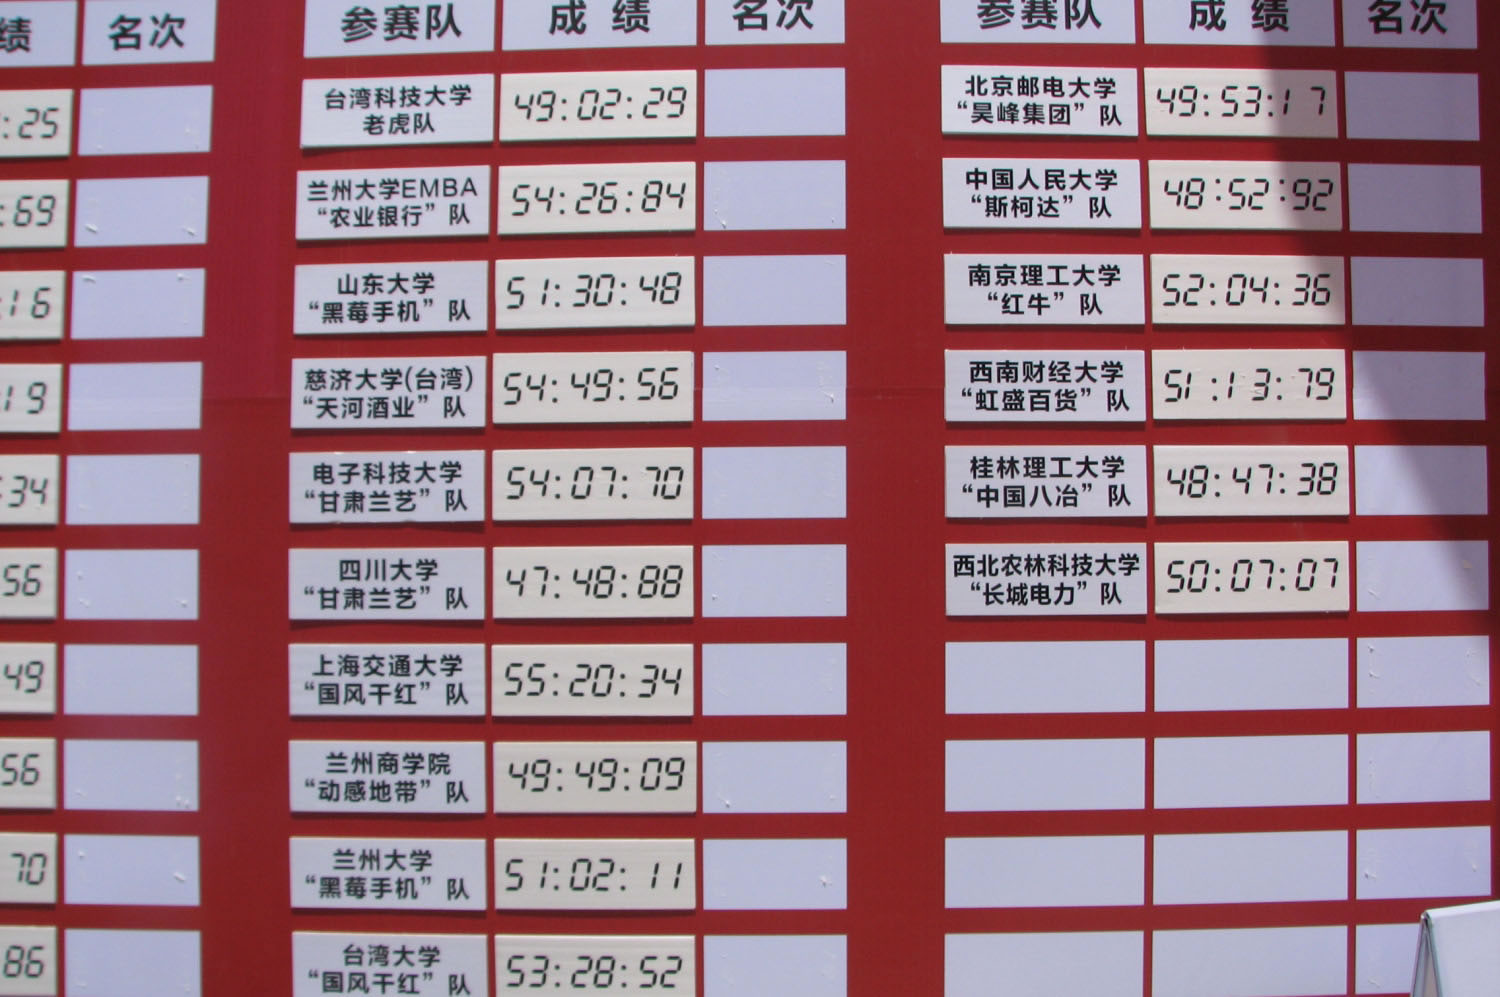 绩 名次
:25
:69
:16
:19
:34
56
49
56
70
86
参赛队 成绩 名次
台湾科技大学
老虎队
49:02:29
兰州大学EMBA
“农业银行”队
54:26:84
山东大学
“黑莓手机”队
51:30:48
慈济大学(台湾)
“天河酒业”队
54:49:56
电子科技大学
“甘肃兰艺”队
54:07:70
四川大学
“甘肃兰艺”队
47:48:88
上海交通大学
“国风干红”队
55:20:34
兰州商学院
“动感地带”队
49:49:09
兰州大学
“黑莓手机”队
51:02:11
台湾大学
“国风干红”队
53:28:52
参赛队 成绩 名次
北京邮电大学
“昊峰集团”队
49:53:17
中国人民大学
“斯柯达”队
48:52:92
南京理工大学
“红牛”队
52:04:36
西南财经大学
“虹盛百货”队
51:13:79
桂林理工大学
“中国八冶”队
48:47:38
西北农林科技大学
“长城电力”队
50:07:07